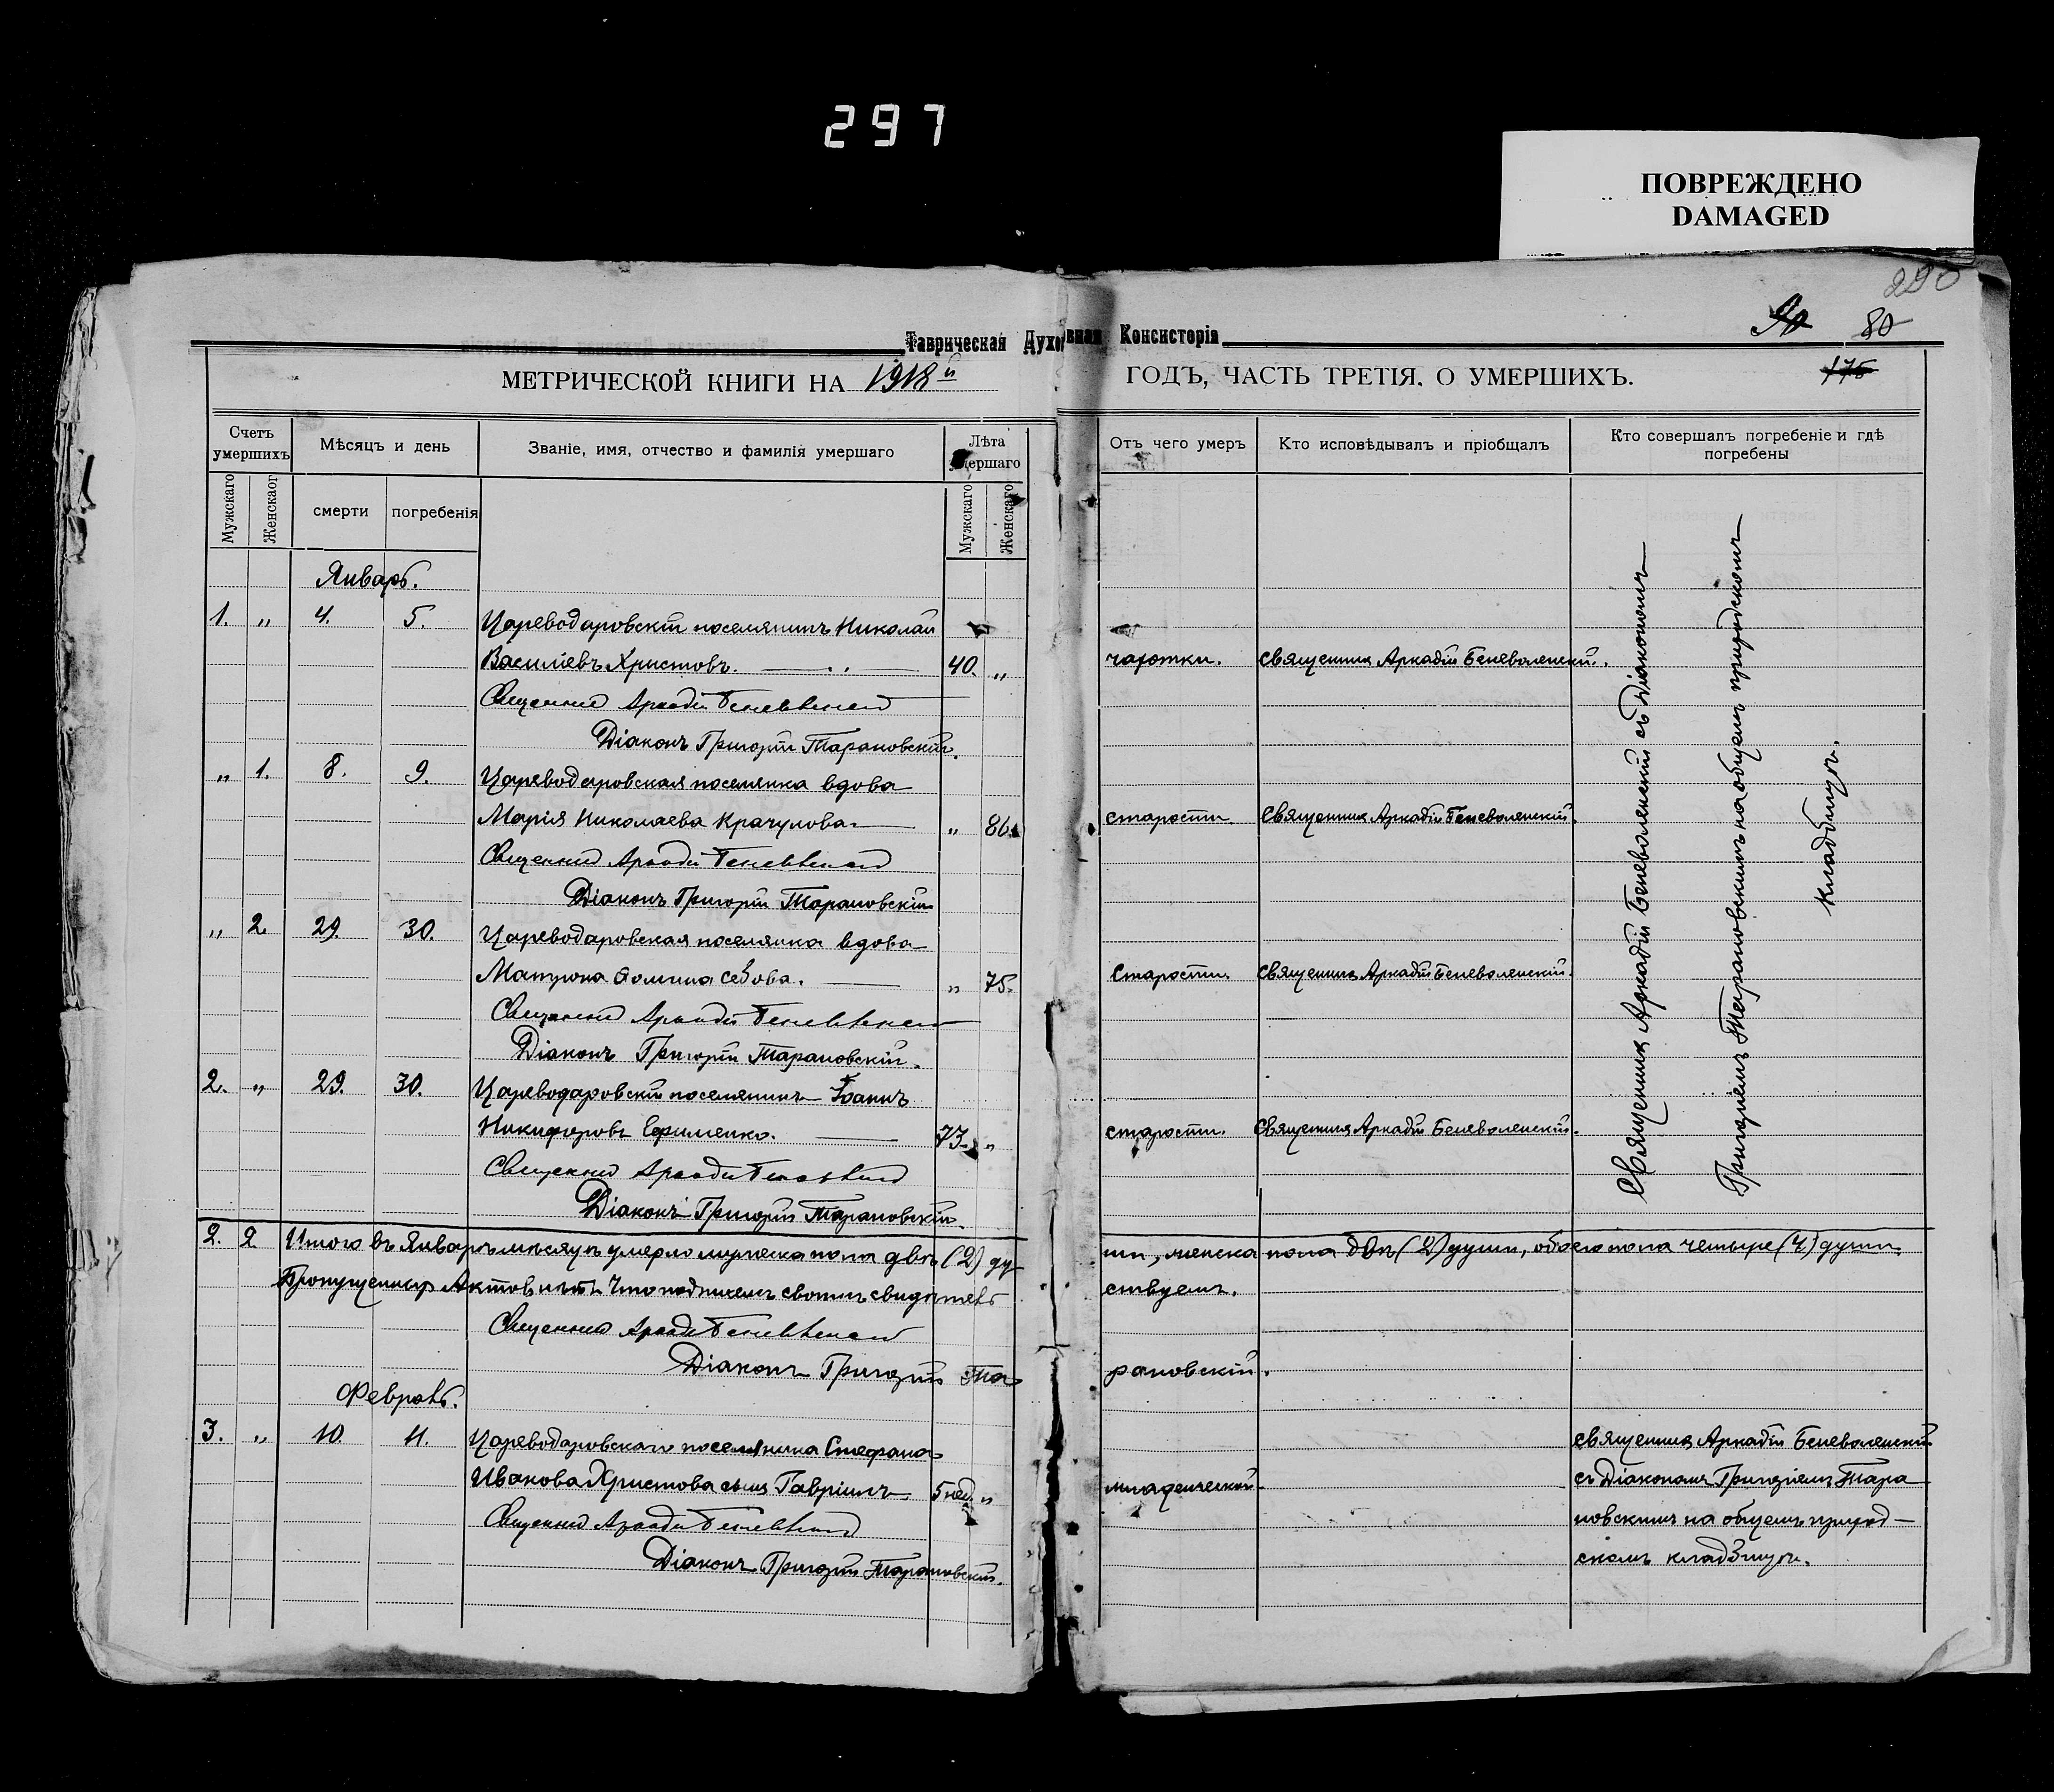 297
ПОВРЕЖДЕНО
DAMAGED
290
90 80
Таврическая Духовная Консисторія
МЕТРИЧЕСКОЙ КНИГИ НА 1918й ГОДЪ, ЧАСТЬ ТРЕТІЯ. О УМЕРШИХЪ.
175
Счетъ умершихъ
Мѣсяцъ и день
Званіе, имя, отчество и фамилія умершаго
Лѣта умершаго
Отъ чего умеръ
Кто исповѣдывалъ и пріобщалъ
Кто совершалъ погребеніе и гдѣ погребены
Мужскаго
Женскаог
смерти
погребенія
Мужскаго
Женскаго
Январь.
1. „ 4. 5. Цареводаровскій поселянинъ Николай
Василіевъ Христовъ. 40. „ чахотки. Священникъ Аркадій Беневоленскій.
Священникъ Аркадій Беневоленскій
Діаконъ Григорій Тарановскій.
„ 1. 8. 9. Цареводаровская поселянка вдова
Марія Николаева Крачунова „ 86. старости. Священникъ Аркадій Беневоленскій.
Священникъ Аркадій Беневоленскій
Діаконъ Григорій Тарановскій
„ 2. 29. 30. Цареводаровская поселянка вдова
Матрона Ѳомина Сѣбова. „ 75. Старости. Священникъ Аркадій Беневоленскій.
Священникъ Аркадій Беневоленскій
Діаконъ Григорій Тарановскій.
2. „ 29. 30. Цареводаровскій поселянинъ Іоаннъ
Никифоровъ Ефименко. 73. „ старости. Священникъ Аркадій Беневоленскій.
Священникъ Аркадій Беневоленскій
Діаконъ Григорій Тарановскій.
Священникъ Аркадій Беневоленскій съ Діакономъ
Григоріемъ Тарановскимъ на общемъ приходскомъ
кладбищѣ.
2. 2 Итого въ Январѣ мѣсяцѣ умерло мужеска пола двѣ (2) ду- ши, женска пола двѣ (2) души, обоего пола четыре (4) души.
Пропущенныхъ Актовъ нѣтъ. Что подписемъ своимъ свидѣтель ствуемъ.
Священникъ Аркадій Беневоленскій
Діаконъ Григорій Та рановскій.
Февраль.
3. „ 10. 11. Цареводаровскаго поселянина Стефана Священникъ Аркадій Беневоленскій
Иванова Христова сынъ Гавріилъ 5 нед. „ младенческой. съ Діакономъ Григоріемъ Тара
Священникъ Аркадій Беневоленскій новскимъ на общемъ приход-
Діаконъ Григорій Тарановскій. скомъ кладбищѣ.